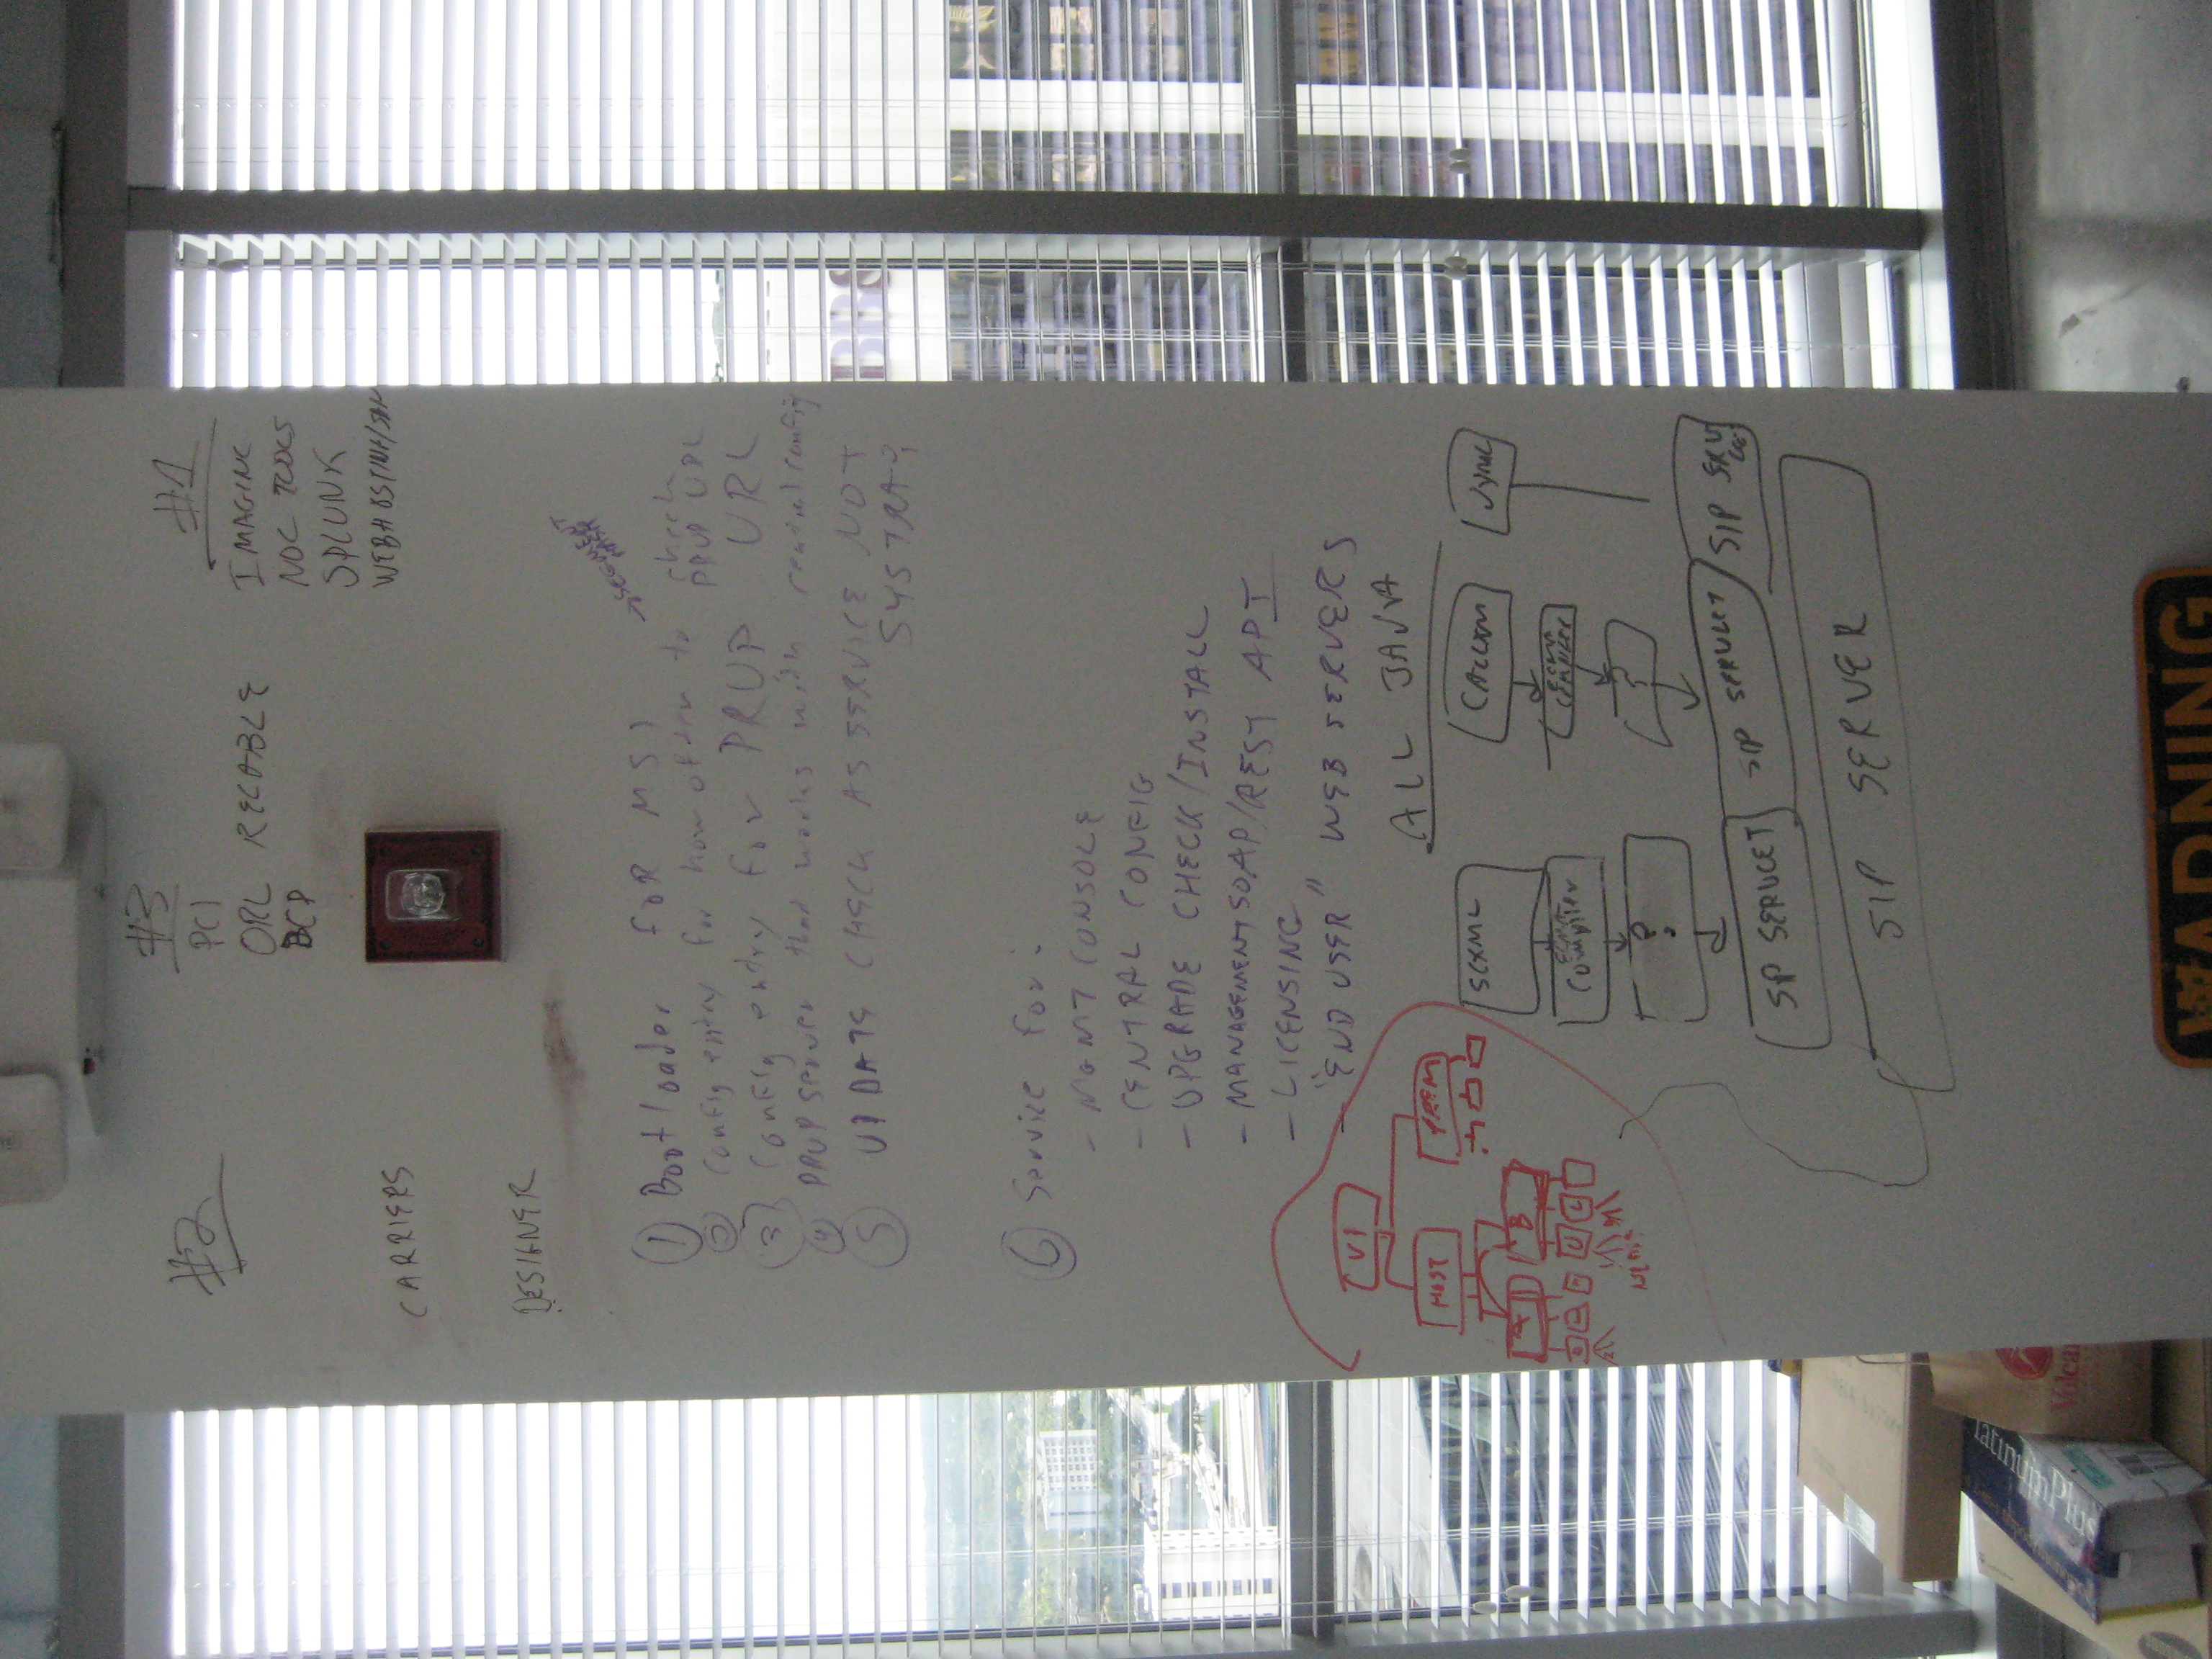 #2
CARRIERS
DESIGNER
#3
PCI
ORL RECABLE
BCP
#1
IMAGING
NOC TOOLS
SPLUNK
① Bootloader FOR MS)
② Config entry for how often to check PRUP URL
③ Config entry for PRUP URL
④ PRUP server that works with central config
⑤ UPDATE CHECK AS SERVICE NOT
SYSTRAY
⑥ Service For:
- MGMT CONSOLE
- CENTRAL CONFIG
- UPGRADE CHECK/INSTALL
- MANAGEMENT SOAP/REST API
- LICENSING
- "END USER" WEB SERVERS
ALL JAVA
V1
HOST
PREM
A
B
SCXML
COMPILER
?
SIP SERVLET
CALLXML
COMPILER
?
SIP SERVLET
SIP SERVLET
SIP SERVER
WARNING
BBS
Volcan
latinumPlus